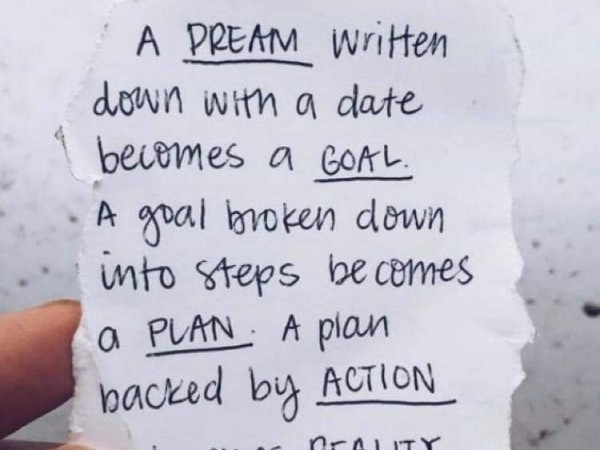 A DREAM written
down with a date
becomes a GOAL.
A goal broken down
into steps becomes
a PLAN. A plan
backed by ACTION
REALITY